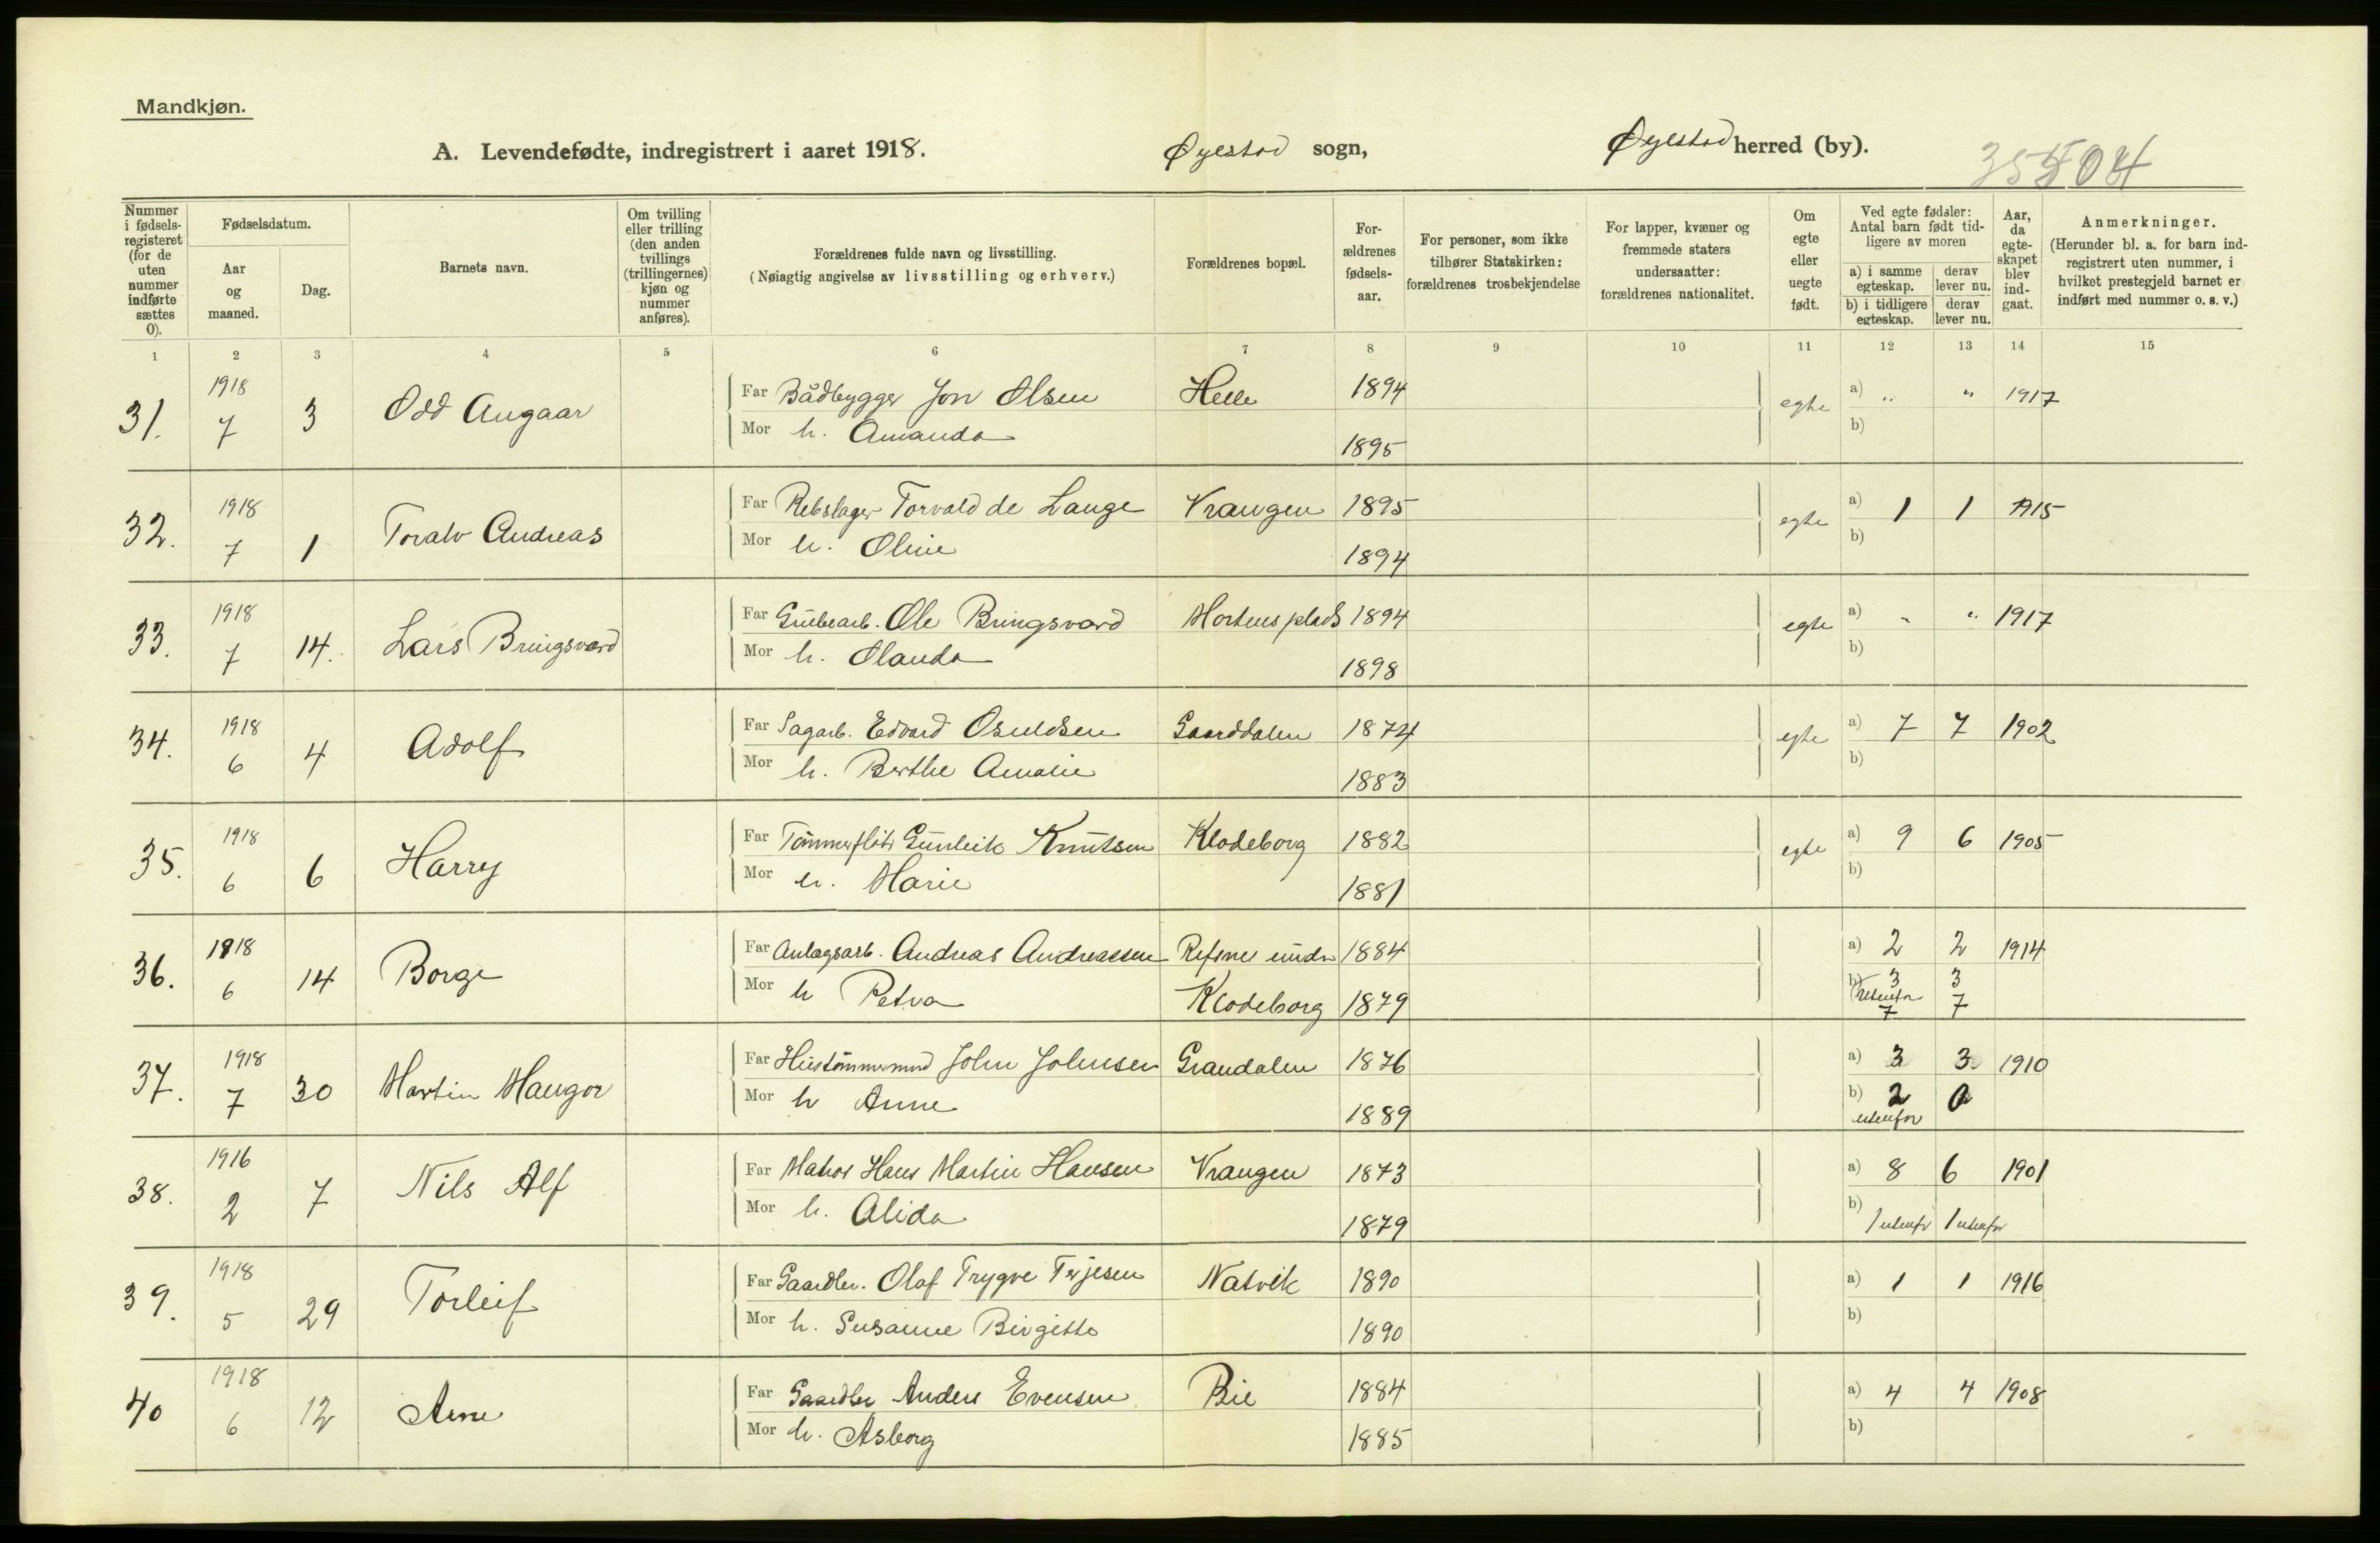 Mandkjøn.
A. Levendefødte, indregistrert i aaret 1918. Øyestad sogn, Øyestad herred (by).
Nummer i fødsels-registeret (for de uten nummer indførte sættes 0).
Fødselsdatum.
Aar og maaned.
Dag.
Barnets navn.
Om tvilling eller trilling (den anden tvillings (trillingernes) kjøn og nummer anføres).
Forældrenes fulde navn og livsstilling.
(Nøiagtig angivelse av livsstilling og erhverv.)
Forældrenes bopæl.
For-ældrenes fødsels-aar.
For personer, som ikke tilhører Statskirken: forældrenes trosbekjendelse
For lapper, kvæner og fremmede staters undersaatter: forældrenes nationalitet.
Om egte eller uegte født.
Ved egte fødsler: Antal barn født tid-ligere av moren
a) i samme egteskap. derav lever nu.
b) i tidligere egteskap. derav lever nu.
Aar, da egte-skapet blev ind-gaat.
Anmerkninger.
(Herunder bl. a. for barn ind-registrert uten nummer, i hvilket prestegjeld barnet er indført med nummer o. s. v.)
1 2 3 4 5 6 7 8 9 10 11 12 13 14 15
31. 1918 7 3 Odd Augaar Far Bådbygger Jon Olsen Helle 1894 egte a) " " 1917
Mor h. Amanda 1895 b)
32. 1918 7 1 Toralv Andreas Far Rebslager Torvald de Lange Vrangen 1895 egte a) 1 1 1915
Mor h. Oline 1894 b)
33. 1918 7 14. Lars Bringsvard Far Grubearb. Ole Bringsvard Mortensplads 1894 egte a) " " 1917
Mor h. Olanda 1898 b)
34. 1918 6 4 Adolf Far Sagarb. Edvard Osuldsen Gaarddalen 1874 egte a) 7 7 1902
Mor h. Berthe Amalie 1883 b)
35. 1918 6 6 Harry Far Tömmerfløter Gunleik Knutsen Klodeborg 1882 egte a) 9 6 1905
Mor h. Marie 1881 b)
36. 1918 6 14 Borge Far Anlagsarb. Andreas Andreassen Refsnes under 1884 a) 2 2 1914
Mor h Petra Klodeborg 1879 b) 3 3
utenfor 7 7
37. 1918 7 30 Martin Maugor Far Hustömmermand John Johnsen Grandalen 1876 a) 3 3 1910
Mor h Anne 1889 b) 2 0
utenfor
38. 1916 2 7 Nils Alf Far Matros Hans Martin Hansen Vrangen 1873 a) 8 6 1901
Mor h. Alida 1879 b) 1 utenfr 1 utenfor
39. 1918 5 29 Torleif Far Gaardbr. Olaf Trygve Terjesen Natvik 1890 a) 1 1 1916
Mor h. Susanne Birgitte 1890 b)
40 1918 6 12 Arne Far Gaardbr Anders Evensen Bie 1884 a) 4 4 1908
Mor h. Asborg 1885 b)